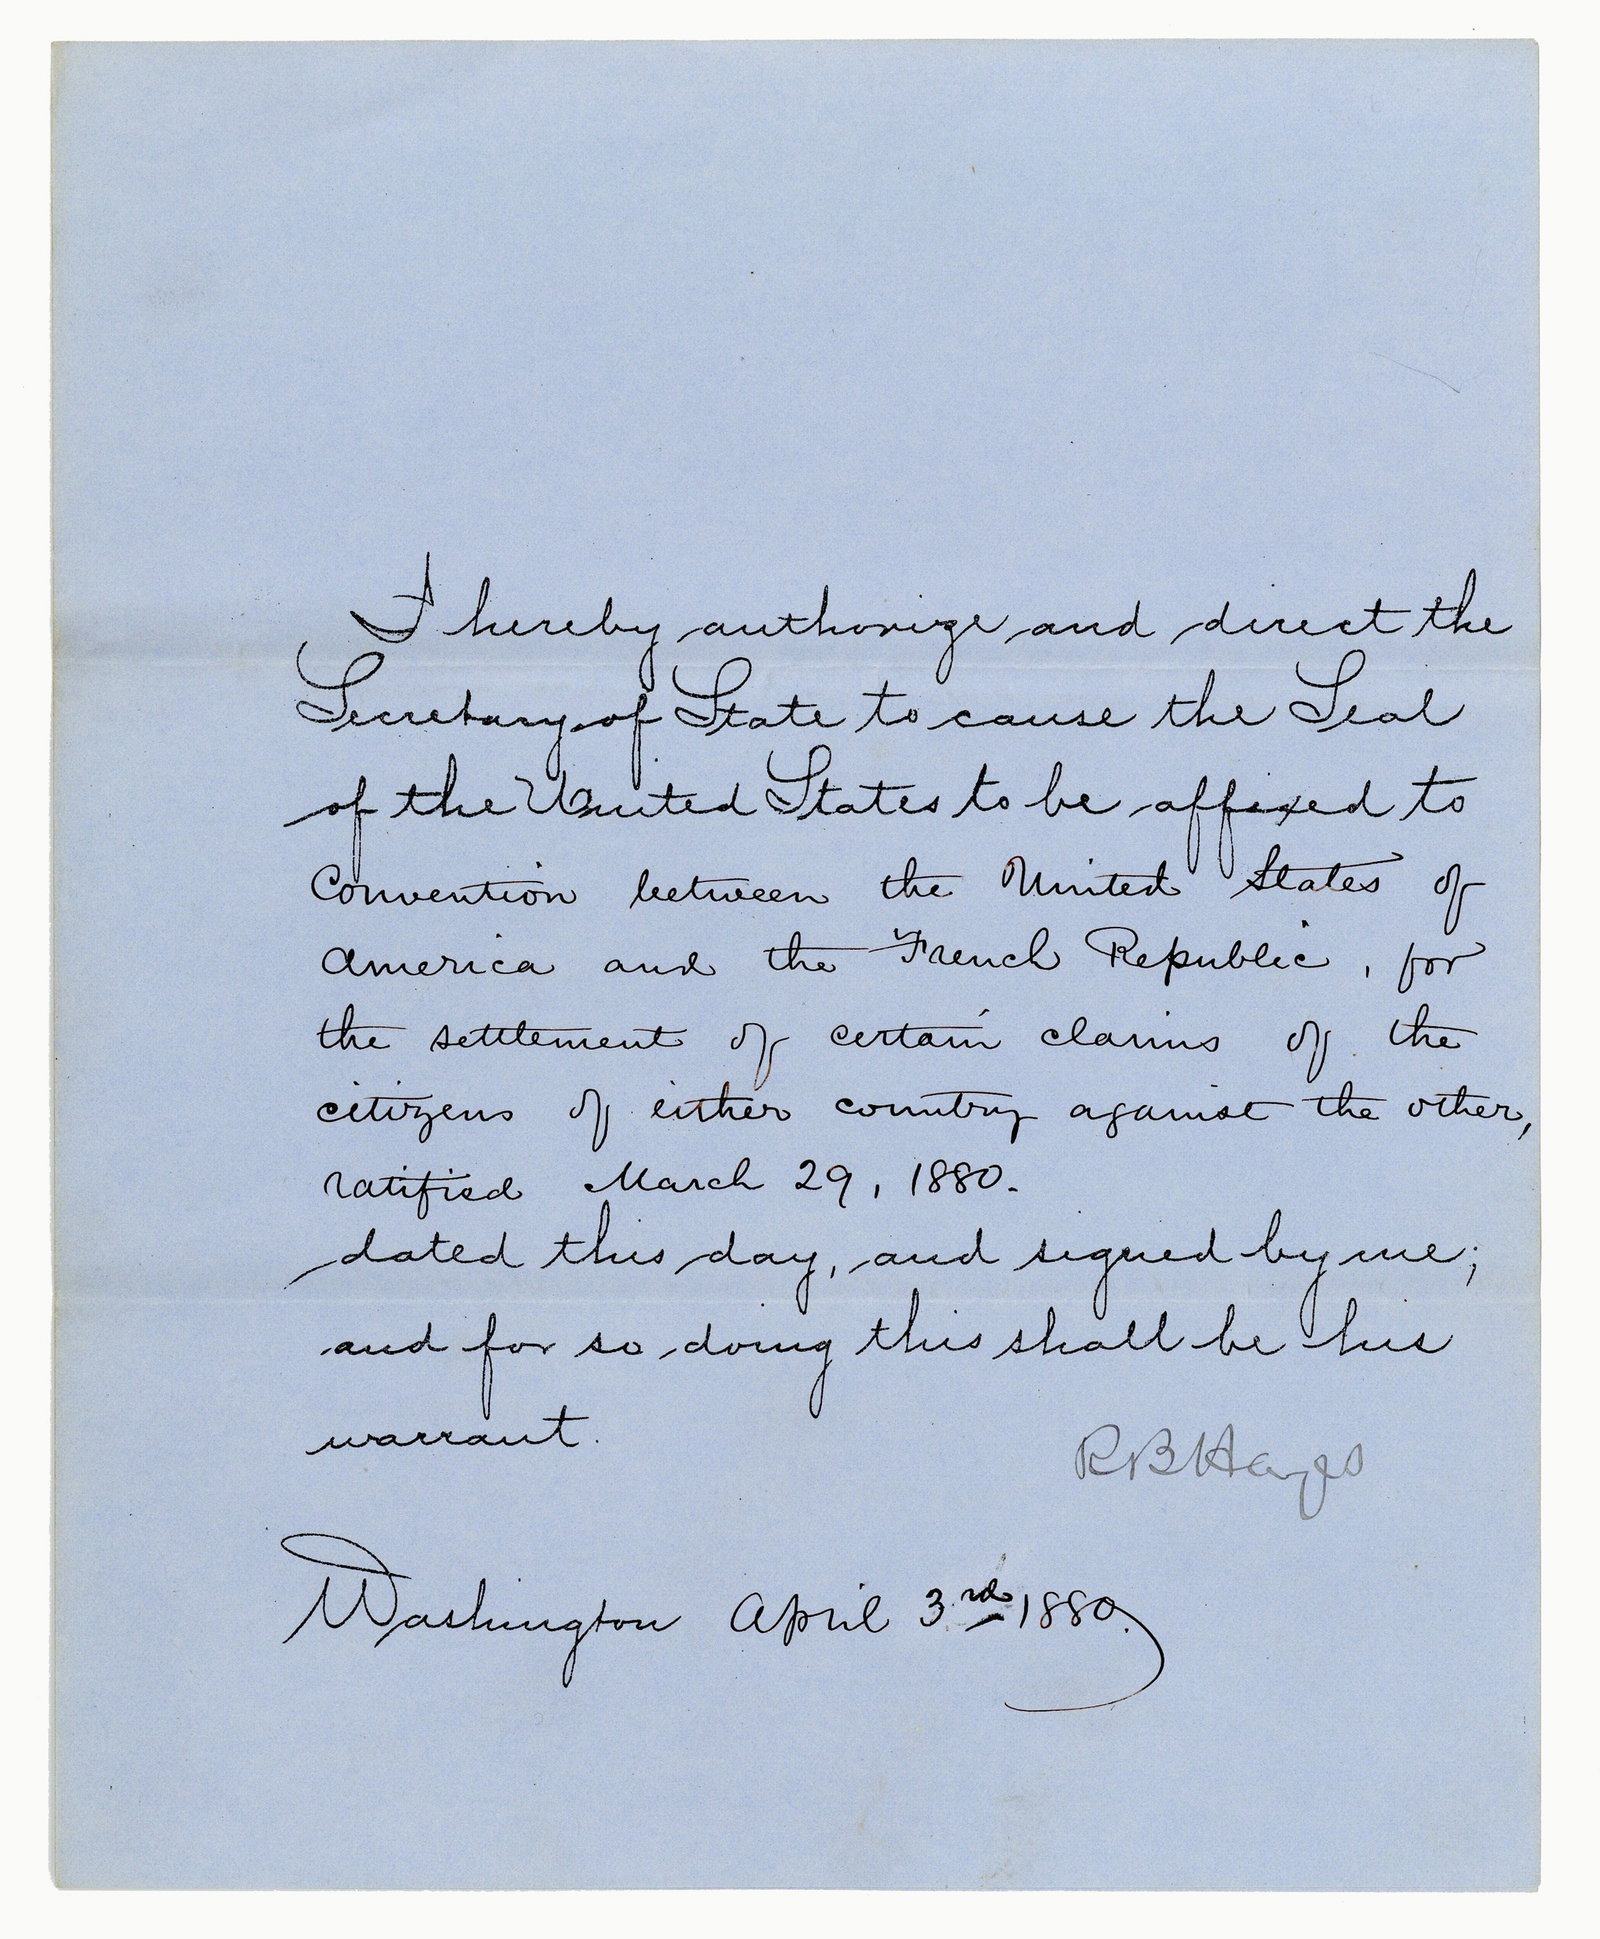 I hereby authorize and direct the
Secretary of State to cause the Seal
of the United States to be affixed to
Convention between the United States of
America and the French Republic, for
the settlement of certain claims of the
citizens of either country against the other,
ratified March 29, 1880.
dated this day, and signed by me;
and for so doing this shall be his
warrant.
R B Hayes
Washington April 3rd 1880.